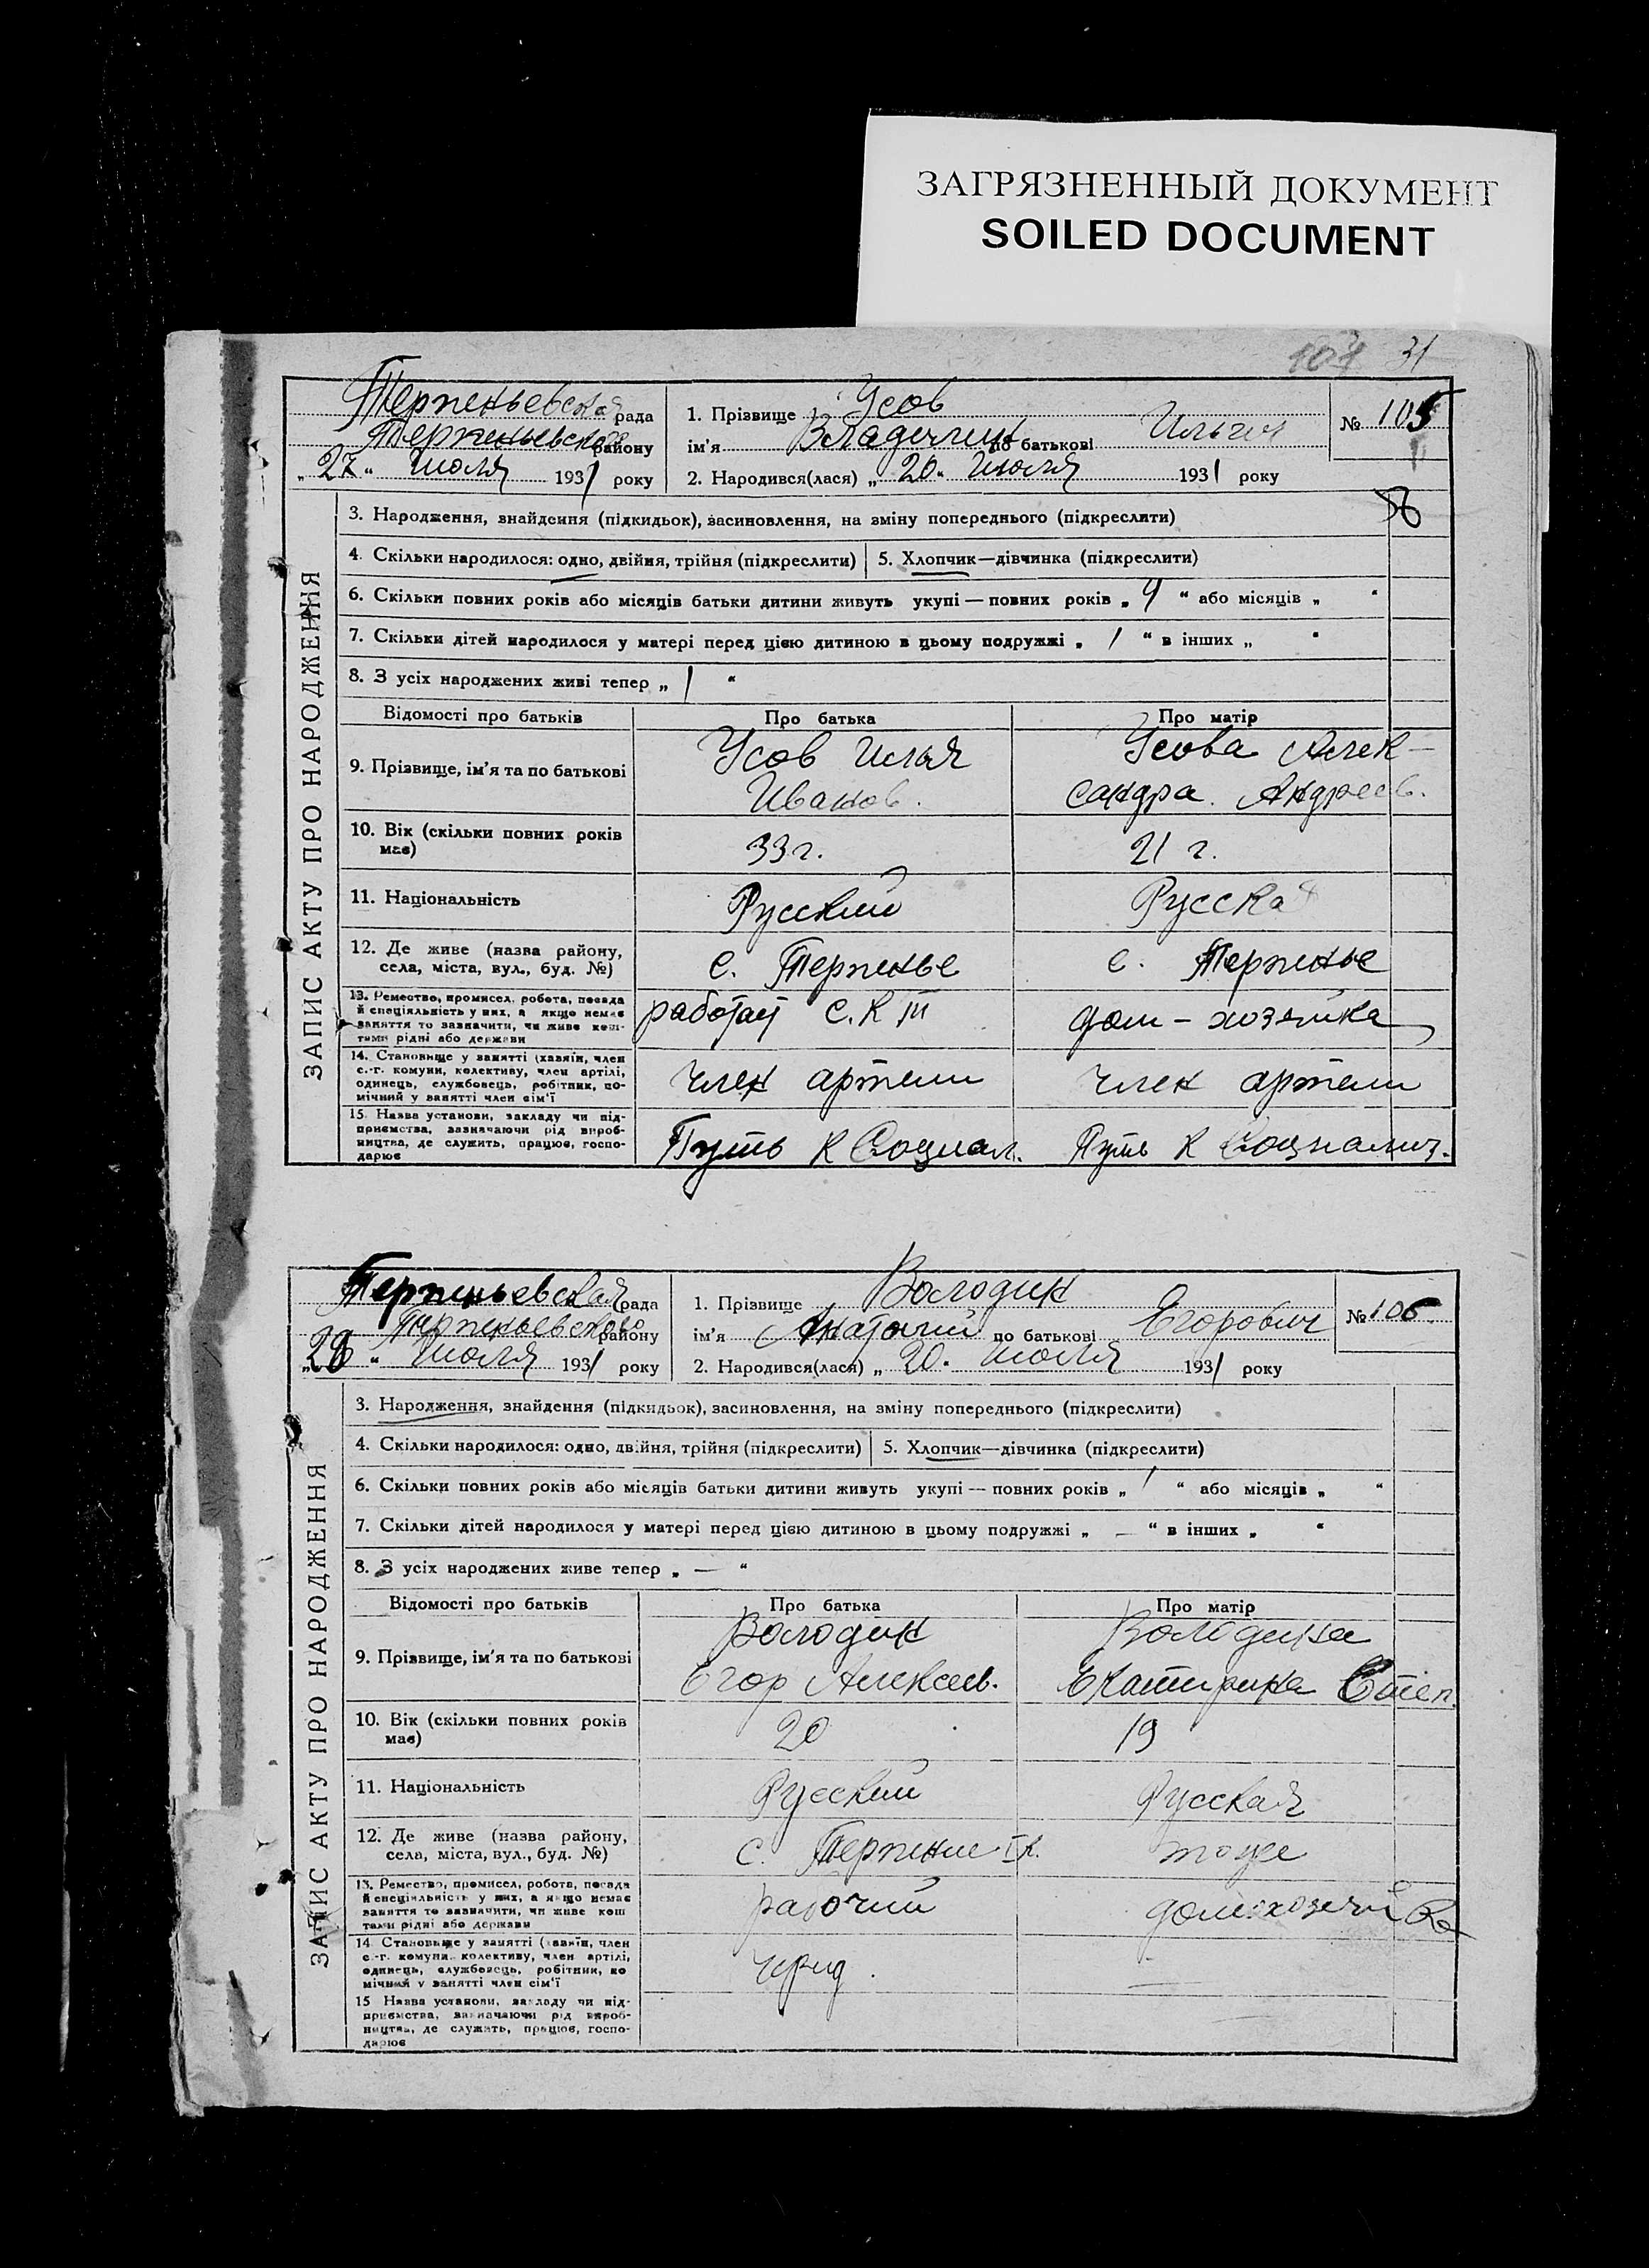 ЗАГРЯЗНЕННЫЙ ДОКУМЕНТ
SOILED DOCUMENT
31
Терпеньевская рада
Терпеньевского району
„27“ июля 1931 року
1. Прізвище Усов
ім’я Владимир по батькові Ильич
2. Народився(лася) „20“ июля 1931 року
№ 105
ЗАПИС АКТУ ПРО НАРОДЖЕННЯ
3. Народження, знайдення (підкидьок), засиновлення, на зміну попереднього (підкреслити)
4. Скільки народилося: одно, двійня, трійня (підкреслити) 5. Хлопчик—дівчинка (підкреслити)
6. Скільки повних років або місяців батьки дитини живуть укупі — повних років „ 4 “ або місяців „ “
7. Скільки дітей народилося у матері перед цією дитиною в цьому подружжі „ 1 “ в інших „ “
8. З усіх народжених живі тепер „ 1 “
Відомості про батьків Про батька Про матір
9. Прізвище, ім’я та по батькові
Усов Илья
Иванов.
Усова Алек-
сандра Андреев.
10. Вік (скільки повних років
має)
33 г.
21 г.
11. Національність
Русский
Русская
12. Де живе (назва району,
села, міста, вул., буд. №)
с. Терпенье
с. Терпенье
13. Ремество, промисел, робота, посада
й спеціяльність у них, а якщо немає
заняття то зазначити, чи живе кош-
тами рідні або держави
работает
дом-хозяйка
14. Становище у занятті (хазяїн, член
с.-г. комуни, колективу, член артілі,
одинець, службовець, робітник, по-
мічний у занятті член сім’ї
член артели
член артели
15. Назва установи, закладу чи під-
приємства, зазначаючи рід вироб-
ництва, де служить, працює, госпо-
дарює
Путь к Социал.
Путь к Социализ.
Терпеньевская рада
Терпеньевского району
„28“ июля 1931 року
1. Прізвище Володин
ім’я Анатолий по батькові Егорович
2. Народився(лася) „20“ июля 1931 року
№ 106
ЗАПИС АКТУ ПРО НАРОДЖЕННЯ
3. Народження, знайдення (підкидьок), засиновлення, на зміну попереднього (підкреслити)
4. Скільки народилося: одно, двійня, трійня (підкреслити) 5. Хлопчик—дівчинка (підкреслити)
6. Скільки повних років або місяців батьки дитини живуть укупі — повних років „ 1 “ або місяців „ “
7. Скільки дітей народилося у матері перед цією дитиною в цьому подружжі „ — “ в інших „ “
8. З усіх народжених живе тепер „ — “
Відомості про батьків Про батька Про матір
9. Прізвище, ім’я та по батькові
Володин
Егор Алексеев.
Володина
Екатирина Степ.
10. Вік (скільки повних років
має)
20
19
11. Національність
Русский
Русская
12. Де живе (назва району,
села, міста, вул., буд. №)
с. Терпение
тоже
13. Ремество, промисел, робота, посада
й спеціяльність у них, а якщо немає
заняття то зазначити, чи живе кош
тами рідні або держави
рабочий
домохозяйка
14. Становище у занятті (хазяїн, член
с.-г. комуни, колективу, член артілі,
одинець, службовець, робітник, по
мічний у занятті член сім’ї
15 Назва установи, закладу чи під-
приємства, зазначаючи рід вироб-
ництва, де служить, працює, госпо-
дарює